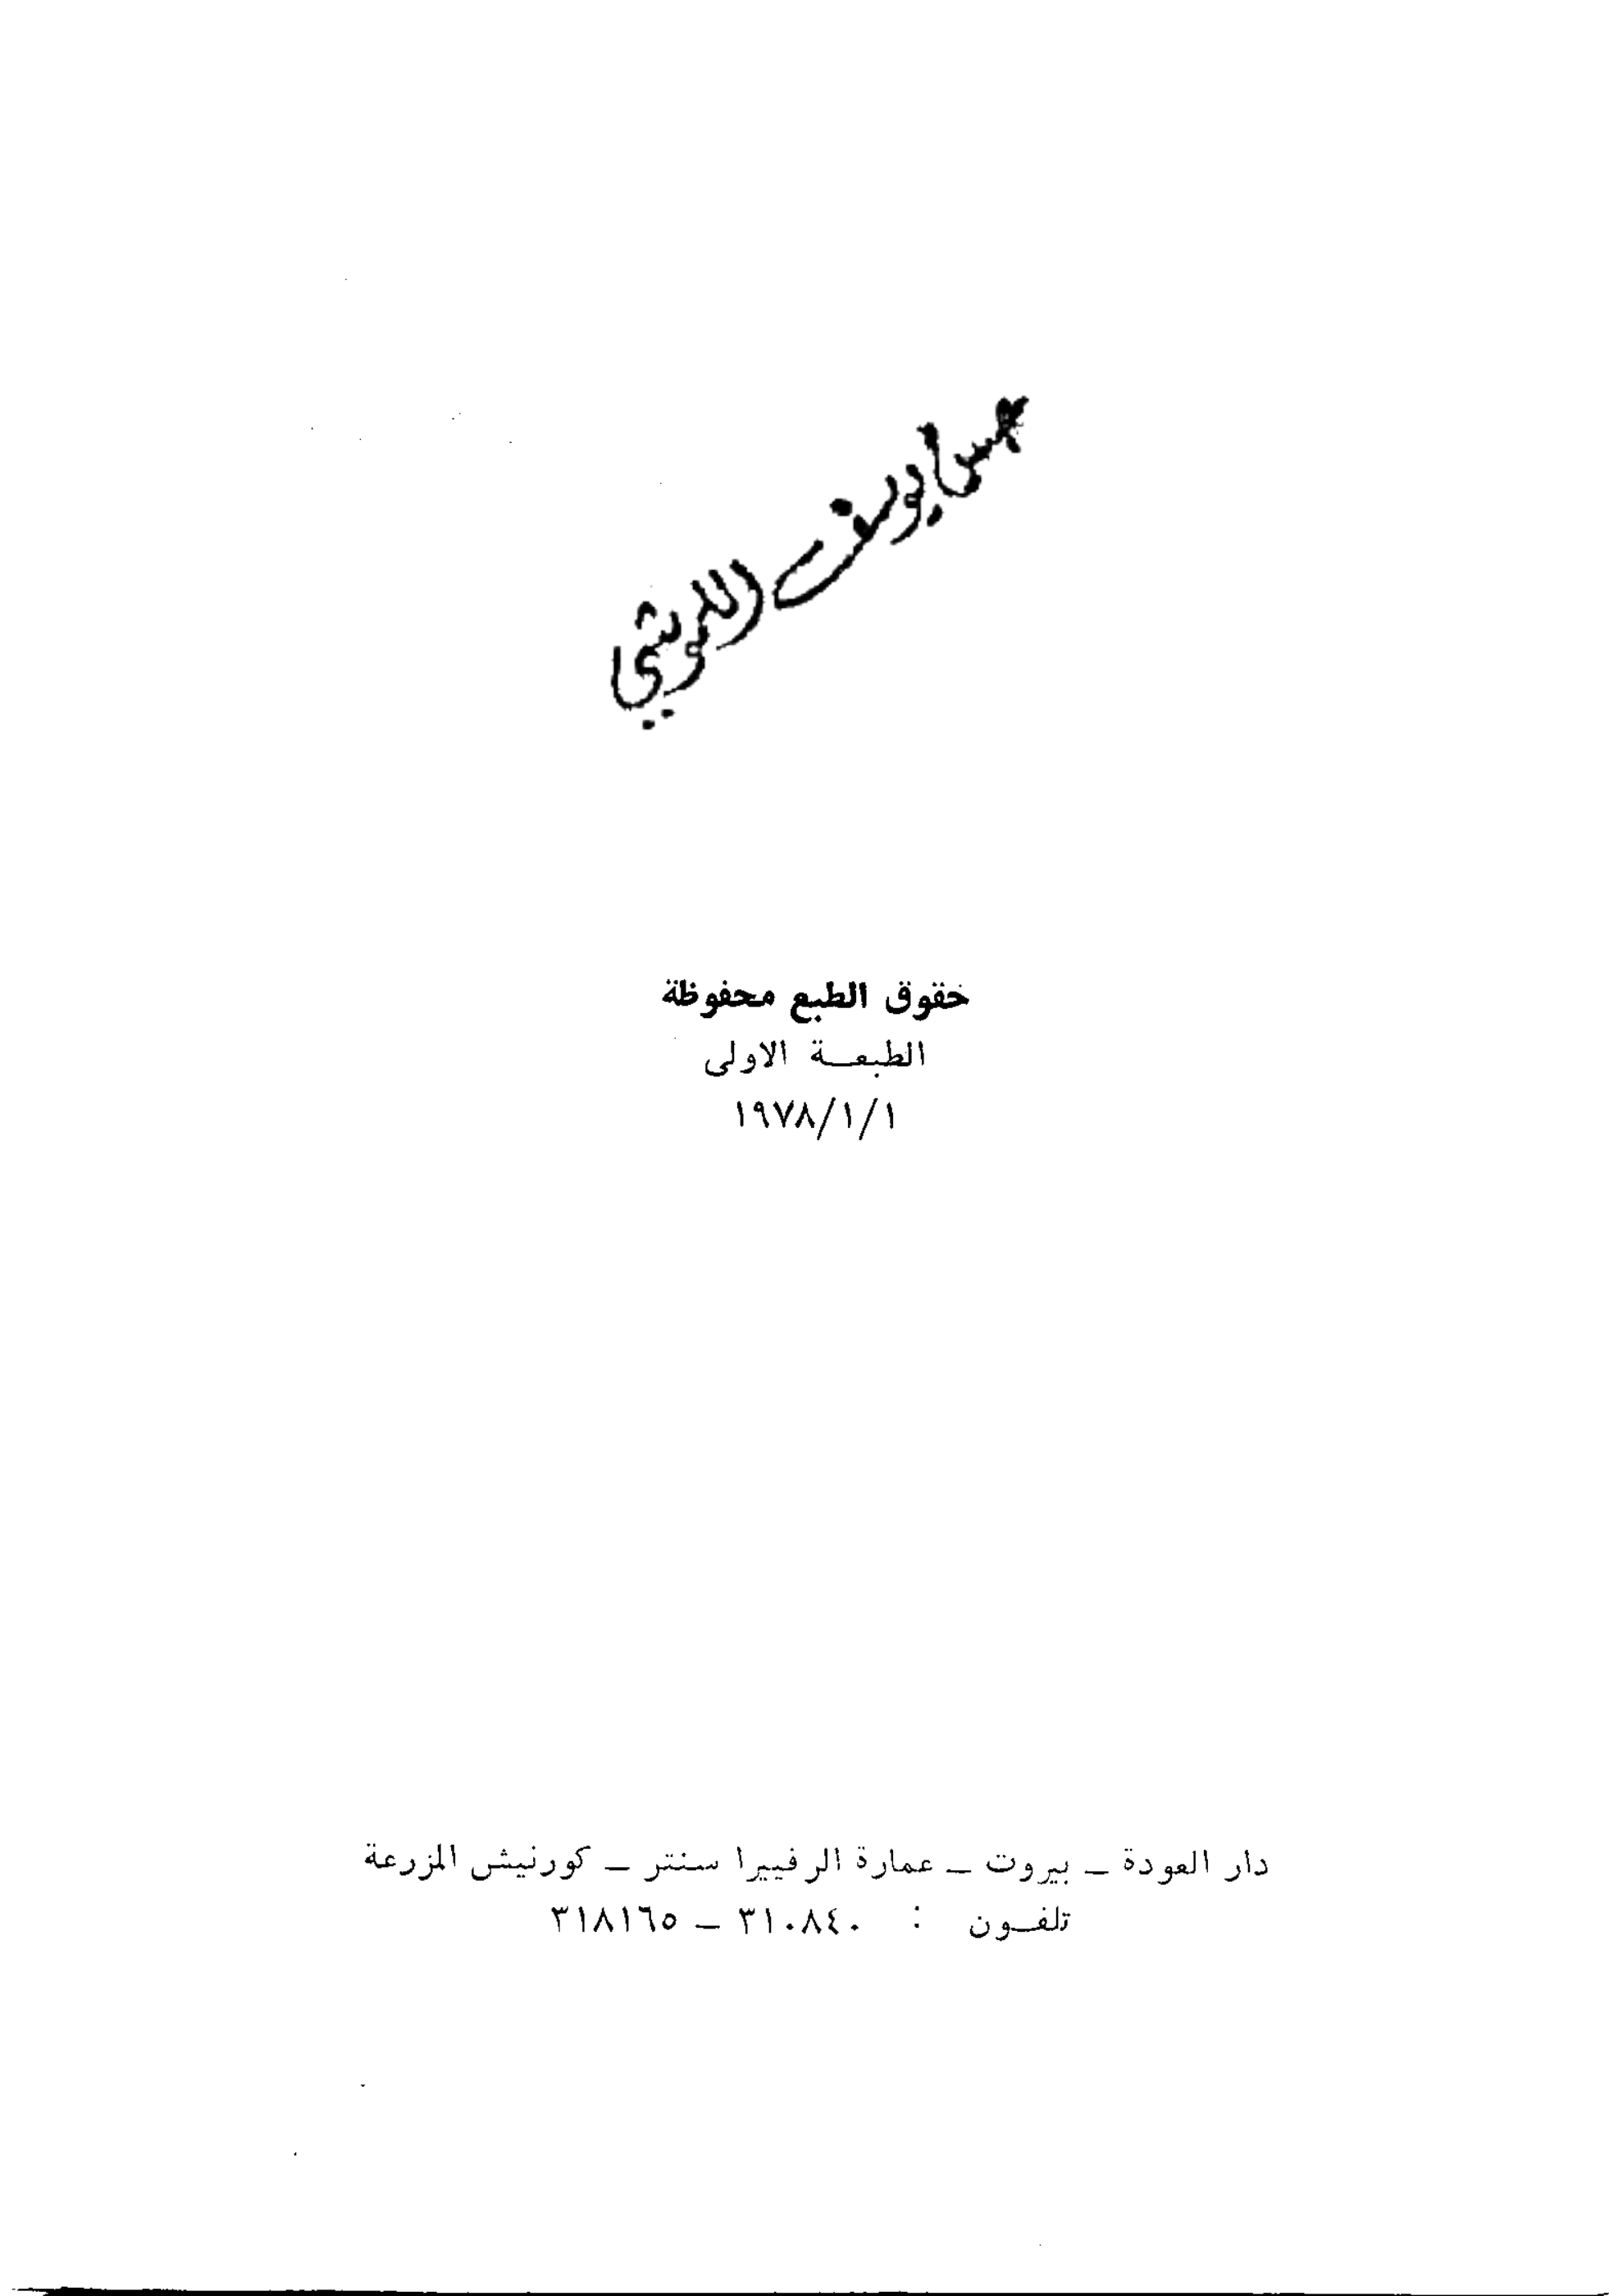 يوسف
حقوق الطبع محفوظة
الطبعـة الاولى
١٩٧٨/١/١
دار العودة ـ بيروت ـ عمارة الرفييرا سنتر ـ كورنيش المزرعة
تلفـون : ٣١٠٨٤٠ ـ ٣١٨١٦٥